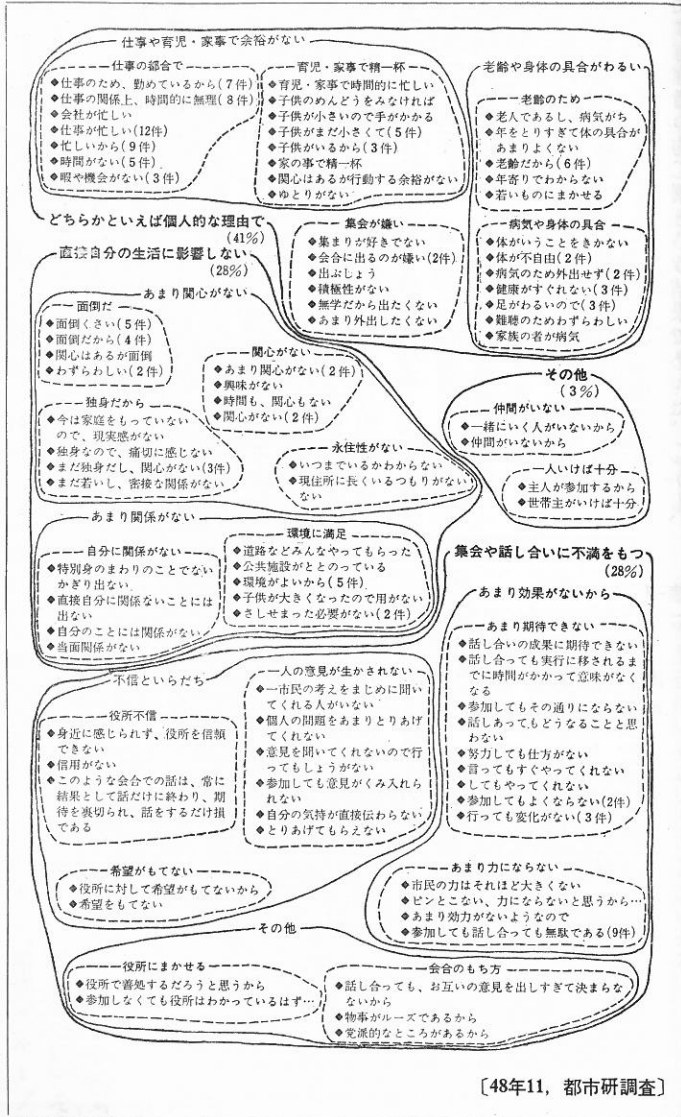 仕事や育児・家事で余裕がない
仕事の都合で
◆仕事のため、勤めているから(7件)
◆仕事の関係上、時間的に無理(8件)
◆会社が忙しい
◆仕事が忙しい(12件)
◆忙しいから(9件)
◆時間がない(5件)
◆暇や機会がない(3件)
育児・家事で精一杯
◆育児・家事で時間的に忙しい
◆子供のめんどうをみなければ
◆子供が小さいので手がかかる
◆子供がまだ小さくて(5件)
◆子供がいるから(3件)
◆家の事で精一杯
◆関心はあるが行動する余裕がない
◆ゆとりがない
老齢や身体の具合がわるい
老齢のため
◆老人であるし、病気がち
◆年をとりすぎて体の具合が
あまりよくない
◆老齢だから(6件)
◆年寄りでわからない
◆若いものにまかせる
病気や身体の具合
◆体がいうことをきかない
◆体が不自由(2件)
◆病気のため外出せず(2件)
◆健康がすぐれない(3件)
◆足がわるいので(3件)
◆難聴のためわずらわしい
◆家族の者が病気
どちらかといえば個人的な理由で
(41%)
集会が嫌い
◆集まりが好きでない
◆会合に出るのが嫌い(2件)
◆出ぶしょう
◆積極性がない
◆無学だから出たくない
◆あまり外出したくない
直接自分の生活に影響しない
(28%)
あまり関心がない
面倒だ
◆面倒くさい(5件)
◆面倒だから(4件)
◆関心はあるが面倒
◆わずらわしい(2件)
関心がない
◆あまり関心がない(2件)
◆興味がない
◆時間も、関心もない
◆関心がない(2件)
独身だから
◆今は家庭をもっていない
ので、現実感がない
◆独身なので、痛切に感じない
◆まだ独身だし、関心がない(3件)
◆まだ若いし、密接な関係がない
永住性がない
◆いつまでいるかわからない
◆現住所に長くいるつもりがない
ない
その他
(3%)
仲間がいない
◆一緒にいく人がいないから
◆仲間がいないから
一人いけば十分
◆主人が参加するから
◆世帯主がいけば十分
あまり関係がない
自分に関係がない
◆特別身のまわりのことでない
かぎり出ない
◆直接自分に関係ないことには
出ない
◆自分のことには関係がない
◆当面関係がない
環境に満足
◆道路などみんなやってもらった
◆公共施設がととのっている
◆環境がよいから(5件)
◆子供が大きくなったので用がない
◆さしせまった必要がない(2件)
集会や話し合いに不満をもつ
(28%)
あまり効果がないから
あまり期待できない
◆話し合いの成果に期待できない
◆話し合っても実行に移されるま
でに時間がかかって意味がなく
なる
◆参加してもその通りにならない
◆話しあってもどうなることと思
わない
◆努力しても仕方がない
◆言ってもすぐやってくれない
◆してもやってくれない
◆参加してもよくならない(2件)
◆行っても変化がない(3件)
不信といらだち
役所不信
◆身近に感じられず、役所を信頼
できない
◆信用がない
◆このような会合での話は、常に
結果として話だけに終わり、期
待を裏切られ、話をするだけ損
である
一人の意見が生かされない
◆一市民の考えをまじめに聞い
てくれる人がいない
◆個人の問題をあまりとりあげ
てくれない
◆意見を聞いてくれないので行
ってもしょうがない
◆参加しても意見がくみ入れら
れない
◆自分の気持が直接伝わらない
◆とりあげてもらえない
希望がもてない
◆役所に対して希望がもてないから
◆希望をもてない
あまり力にならない
◆市民の力はそれほど大きくない
◆ピンとこない、力にならないと思うから…
◆あまり効力がないようなので
◆参加しても話し合っても無駄である(9件)
その他
役所にまかせる
◆役所で善処するだろうと思うから
◆参加しなくても役所はわかっているはず…
会合のもち方
◆話し合っても、お互いの意見を出しすぎて決まらな
ないから
◆物事がルーズであるから
◆党派的なところがあるから
〔48年11，都市研調査〕